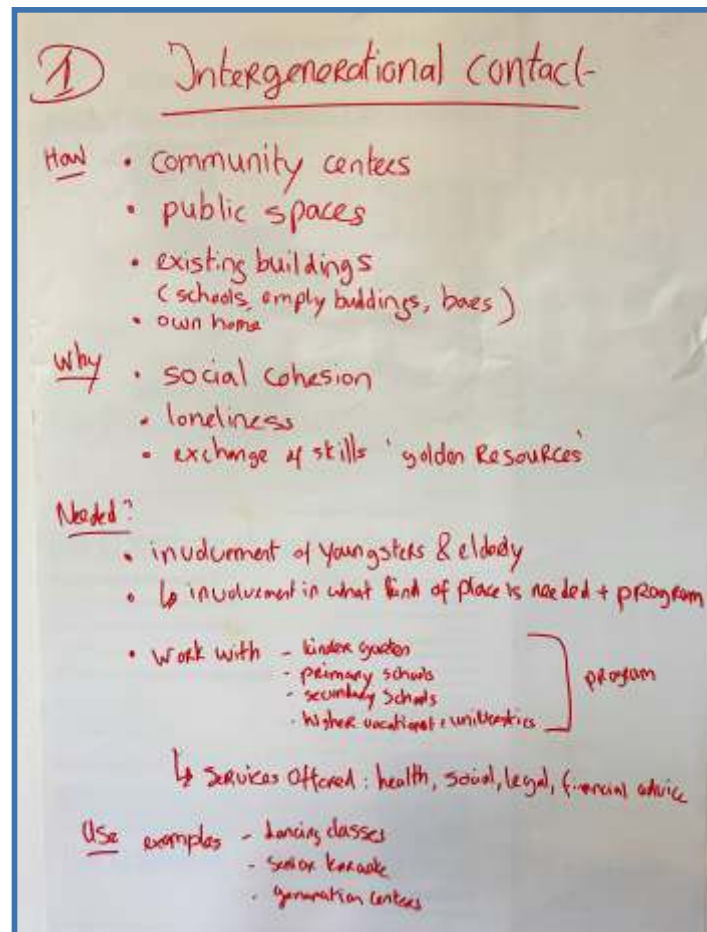 1 Intergenerational contact
How • community centers
• public spaces
• existing buildings
(schools, empty buildings, )
• own home
Why • social cohesion
• loneliness
• exchange of skills 'golden Resources'
Needed?
• involvement of youngsters & elderly
• ↳ involvement in what kind of place is needed + program
• work with - kinder garten
- primary schools
- secundary schools
- higher vocational + universities
program
↳ Services offered: health, social, legal, financial advice
Use examples - dancing classes
- senior karaoke
- generation centers